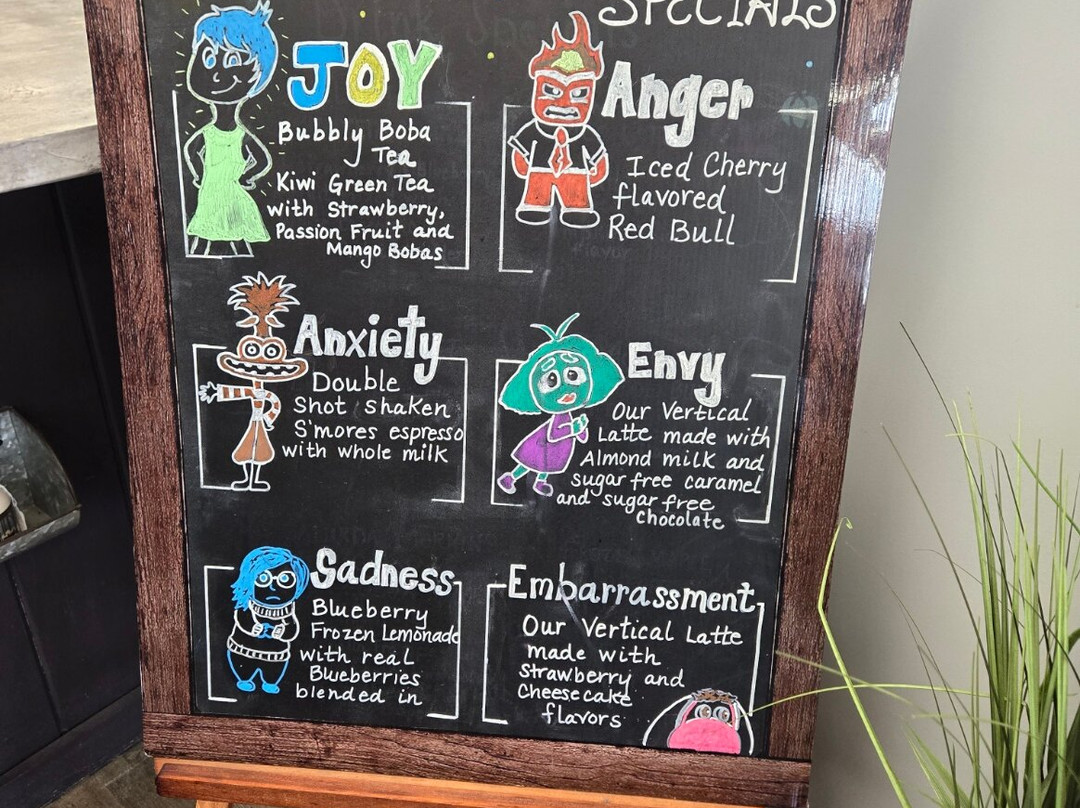 SPECIALS
JOY
Bubbly Boba
Tea
Kiwi Green Tea
with Strawberry,
Passion Fruit and
Mango Bobas
Anger
Iced Cherry
flavored
Red Bull
Anxiety
Double
Shot shaken
S'mores espresso
with whole milk
Envy
Our Vertical
Latte made with
Almond milk and
sugar free caramel
and sugar free
Chocolate
Sadness
Blueberry
Frozen Lemonade
with real
Blueberries
blended in
Embarrassment
Our Vertical Latte
made with
Strawberry and
Cheesecake
flavors